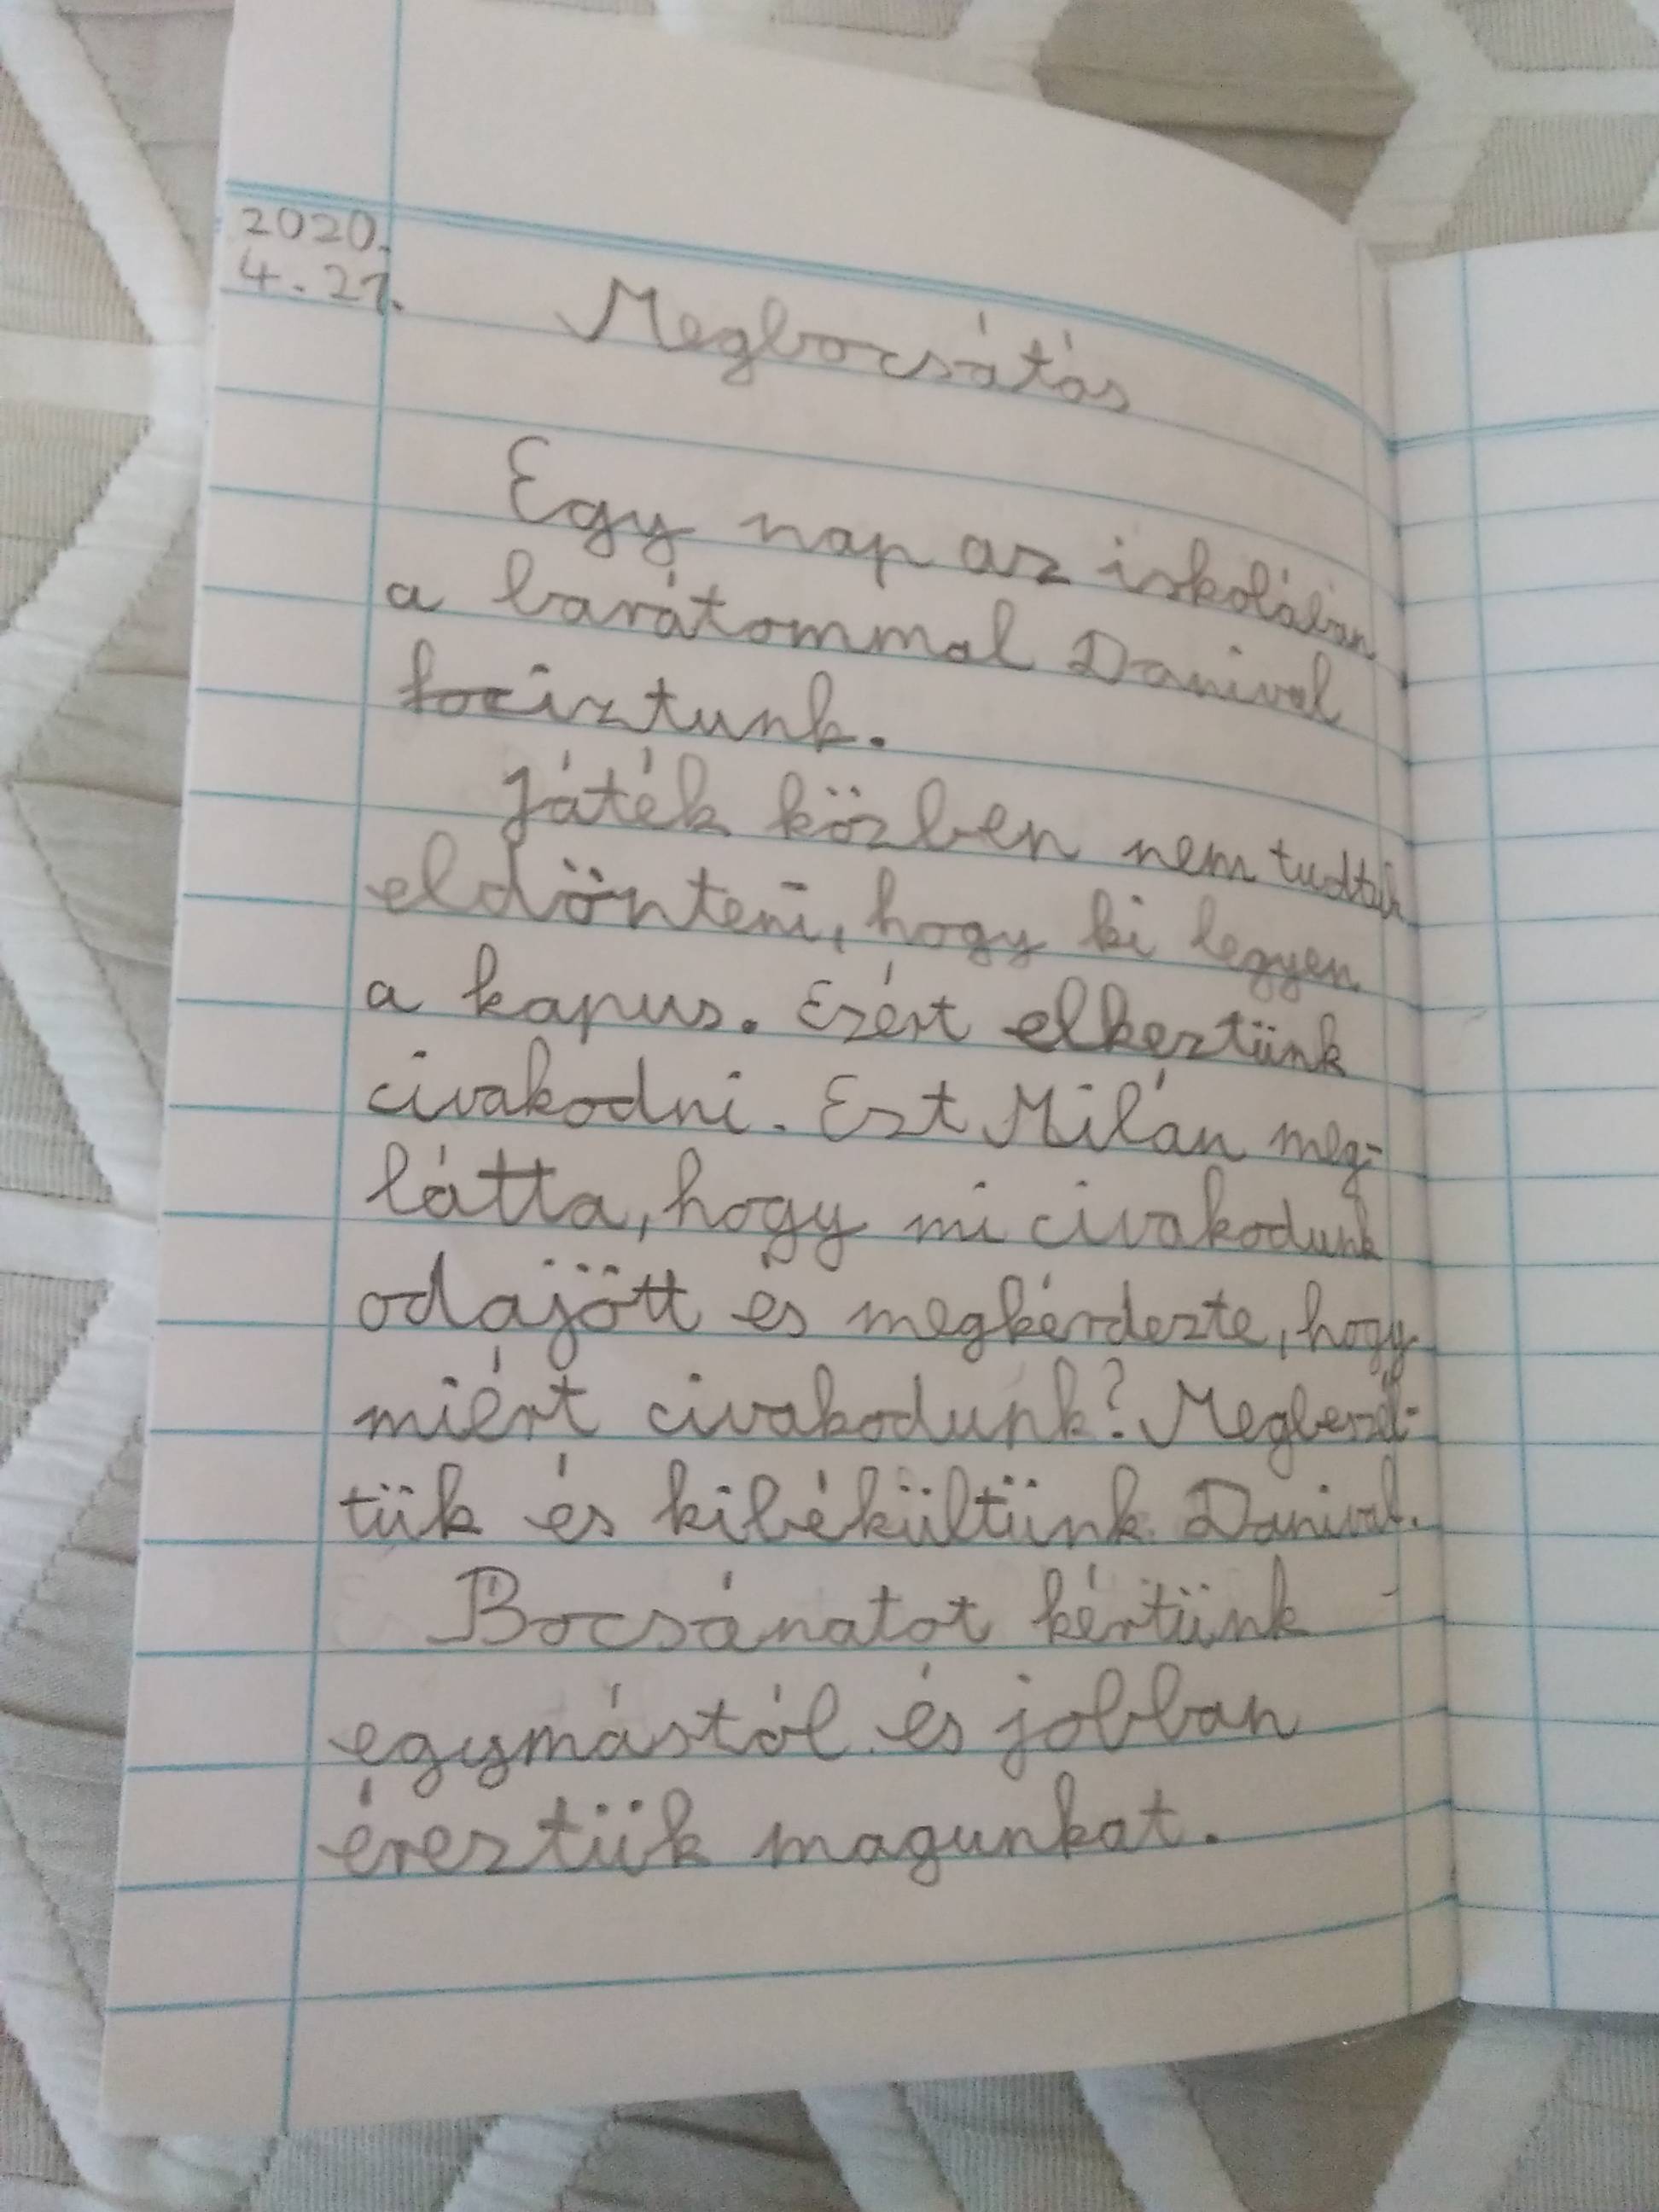 2020.
4. 27.
Megbocsátás
Egy nap az iskolában
a barátommal Danival
fociztunk.
Játék közben nem tudtuk
eldönteni, hogy ki legyen
a kapus. Ezért elkeztünk
civakodni. Ezt Milán meg-
látta, hogy mi civakodunk
odajött és megkérdezte, hogy
miért civakodunk? Megbeszél-
tük és kibékültünk Danival.
Bocsánatot kértünk
egymástól és jobban
éreztük magunkat.